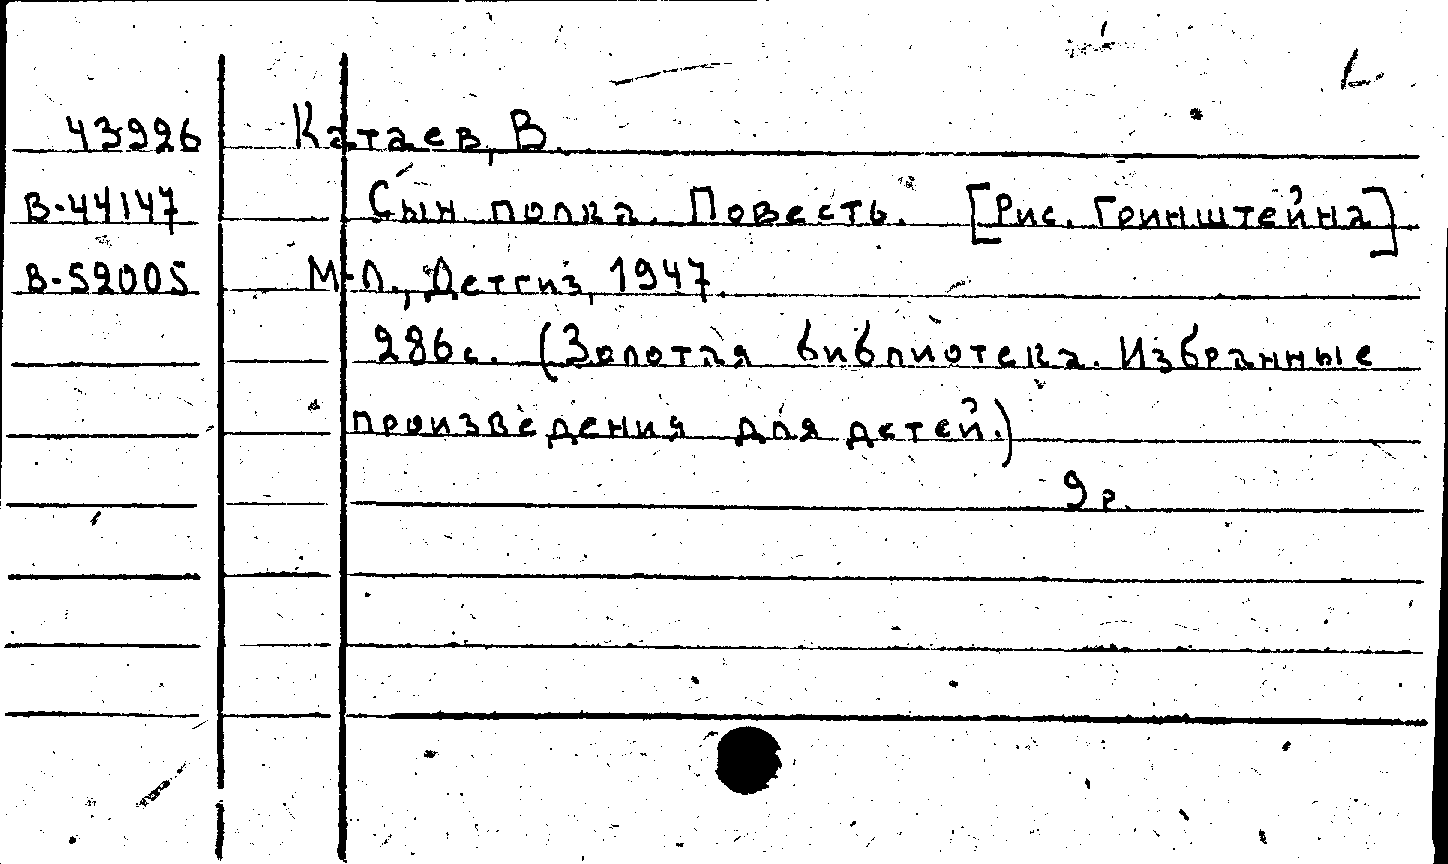 43996 Катаев, В.
В-44147 Сын полка. Повесть. [Рис. Гринштейна]
В-59005 М-Л., Детгиз, 1947.
286с. (Золотая библиотека. Избранные
произведения для детей.)
9 р.